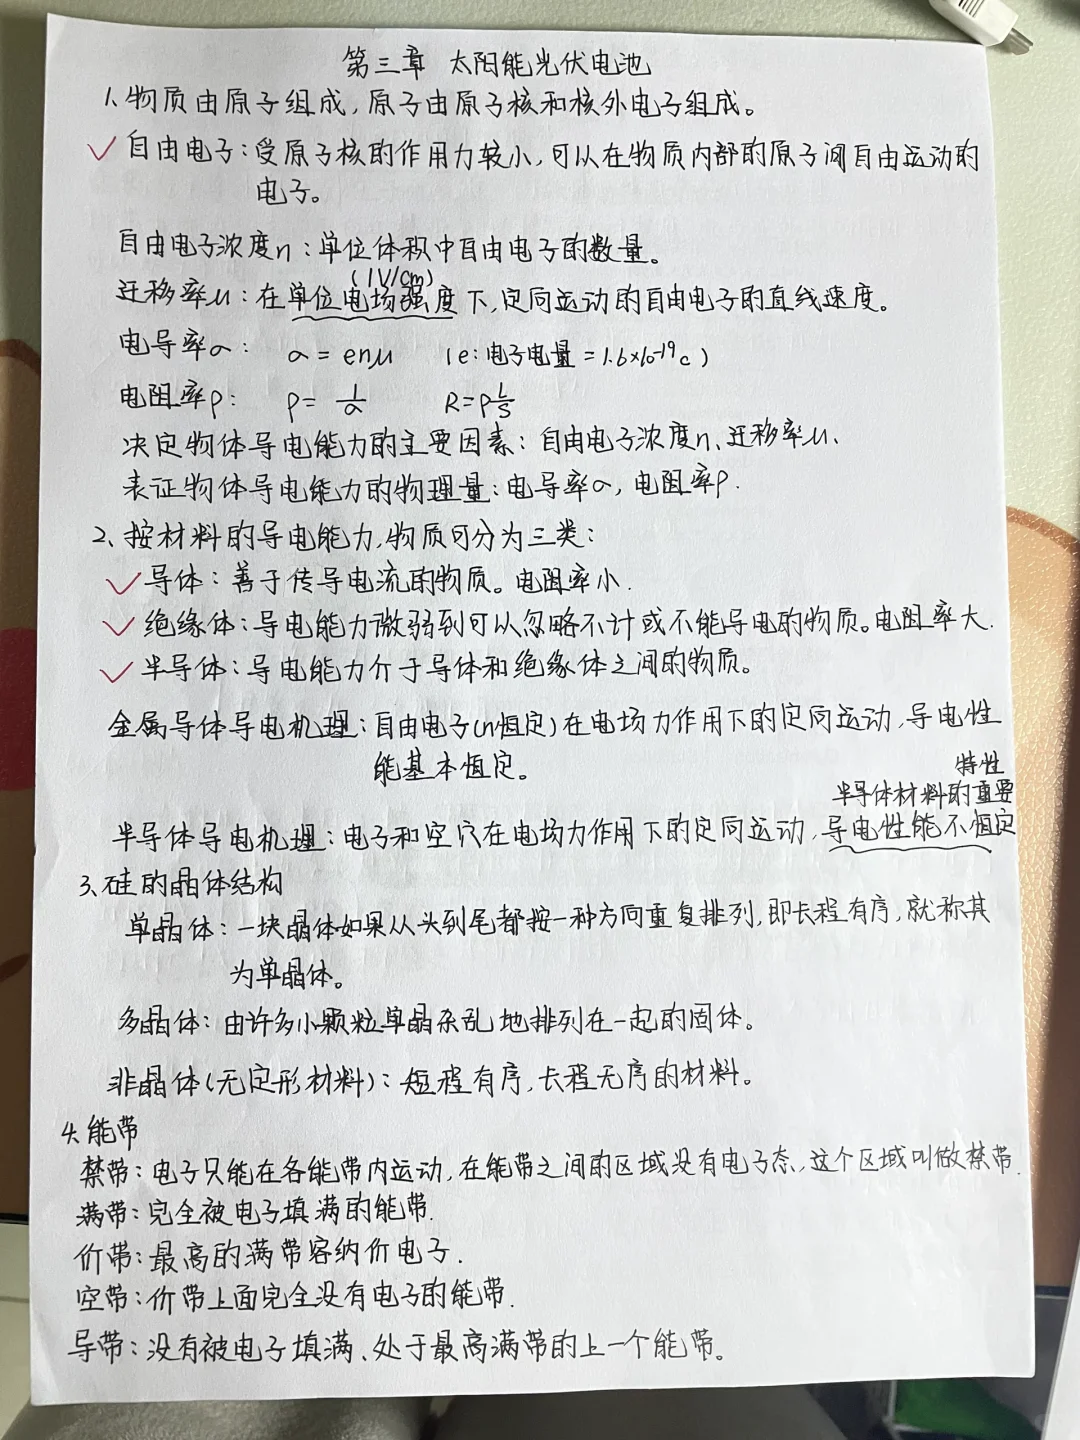 第三章 太阳能光伏电池
1、物质由原子组成,原子由原子核和核外电子组成。
✓ 自由电子:受原子核的作用力较小,可以在物质内部的原子间自由运动的
电子。
自由电子浓度n:单位体积中自由电子的数量。
(1V/cm)
迁移率μ:在单位电场强度下,定向运动的自由电子的直线速度。
电导率σ: σ=enμ (e:电子电量=1.6×10⁻¹⁹c)
电阻率ρ: ρ=1/σ R=ρL/S
决定物体导电能力的主要因素:自由电子浓度n、迁移率μ、
表证物体导电能力的物理量:电导率σ,电阻率ρ.
2、按材料的导电能力,物质可分为三类:
✓ 导体:善于传导电流的物质。电阻率小.
✓ 绝缘体:导电能力微弱到可以忽略不计或不能导电的物质。电阻率大.
✓ 半导体:导电能力介于导体和绝缘体之间的物质。
金属导体导电机理:自由电子(n恒定)在电场力作用下的定向运动,导电性
能基本恒定。
特性
半导体材料的重要
半导体导电机理:电子和空穴在电场力作用下的定向运动,导电性能不恒定
3、硅的晶体结构
单晶体:一块晶体如果从头到尾都按一种方向重复排列,即长程有序,就称其
为单晶体。
多晶体:由许多小颗粒单晶杂乱地排列在一起的固体。
非晶体(无定形材料):短程有序,长程无序的材料。
4、能带
禁带:电子只能在各能带内运动,在能带之间的区域没有电子态,这个区域叫做禁带.
满带:完全被电子填满的能带.
价带:最高的满带容纳价电子.
空带:价带上面完全没有电子的能带.
导带:没有被电子填满、处于最高满带的上一个能带。